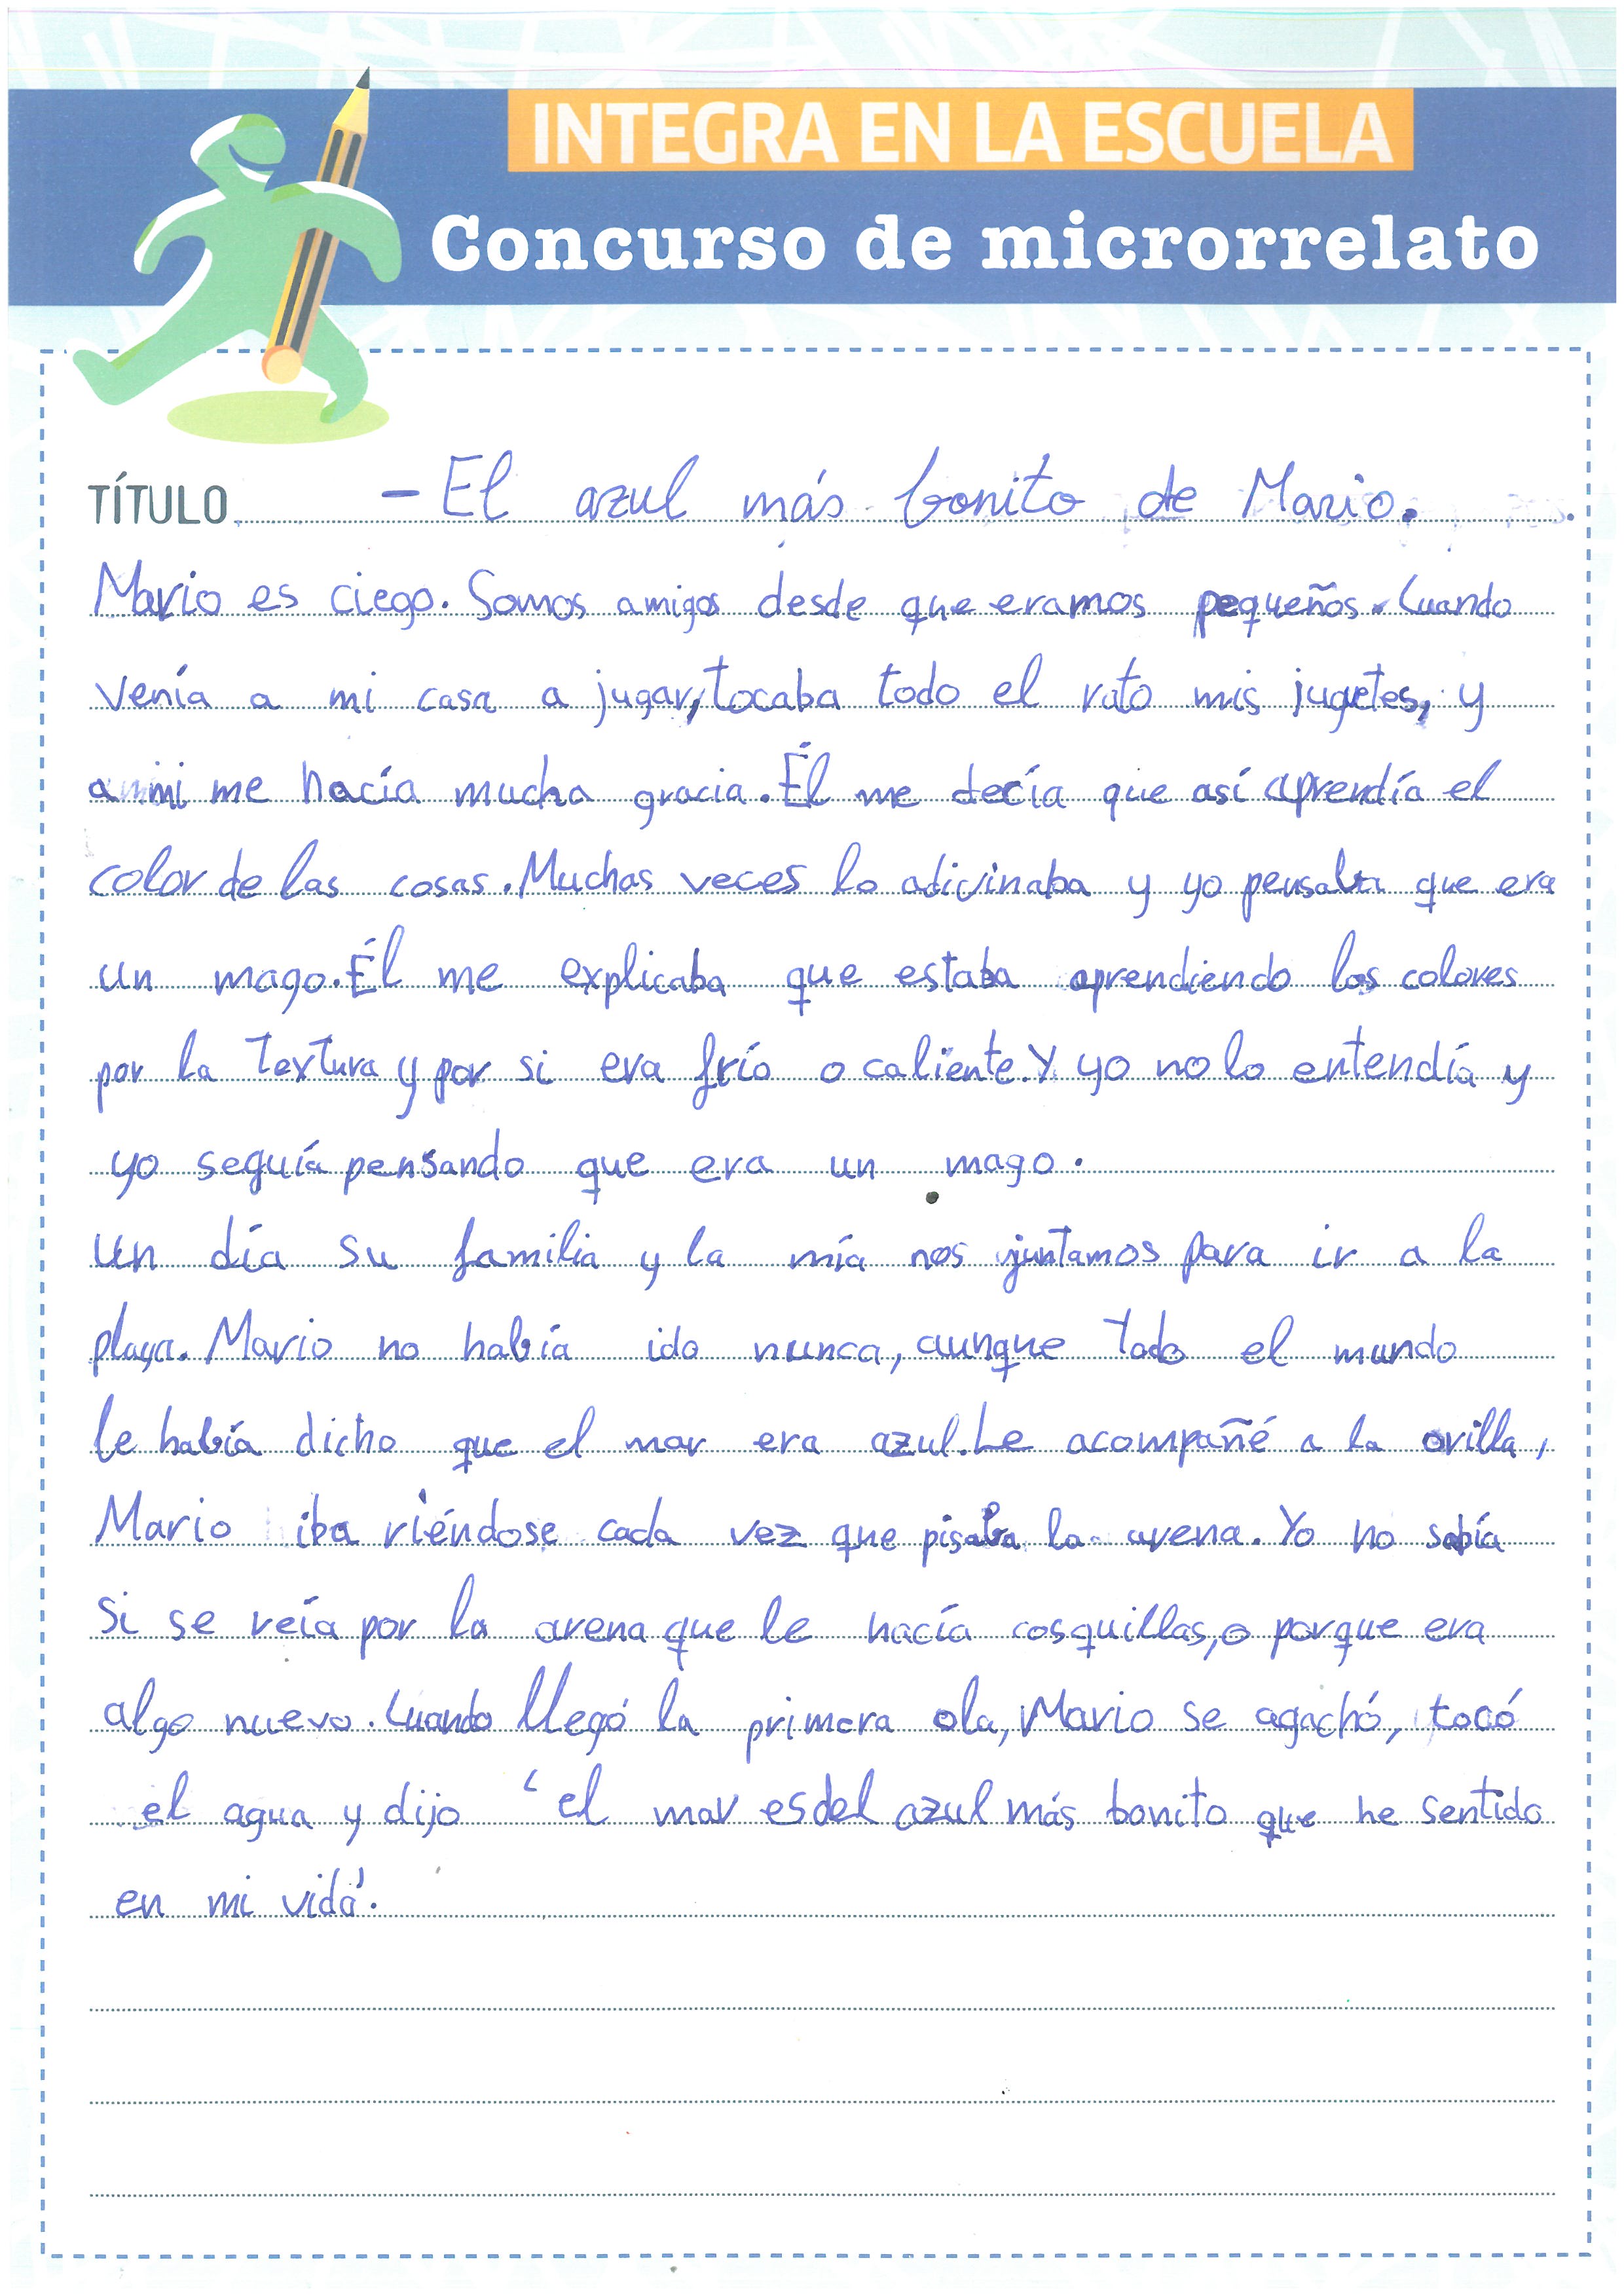 INTEGRA EN LA ESCUELA
Concurso de microrrelato
TÍTULO - El azul más bonito de Mario.
Mario es ciego. Somos amigos desde que eramos pequeños. Cuando
venía a mi casa a jugar, tocaba todo el rato mis jugetes, y
a mi me hacía mucha gracia. Él me decía que así aprendía el
color de las cosas. Muchas veces lo adivinaba y yo pensaba que era
un mago. Él me explicaba que estaba aprendiendo los colores
por la textura y por si era frío o caliente. Y yo no lo entendía y
yo seguía pensando que era un mago.
Un día su familia y la mía nos juntamos para ir a la
playa. Mario no había ido nunca, aunque todo el mundo
le había dicho que el mar era azul. Le acompañé a la orilla,
Mario iba riéndose cada vez que pisaba la arena. Yo no sabía
si se reía por la arena que le hacía cosquillas, o porque era
algo nuevo. Cuando llegó la primera ola, Mario se agachó, tocó
el agua y dijo ‘el mar es del azul más bonito que he sentido
en mi vida’.